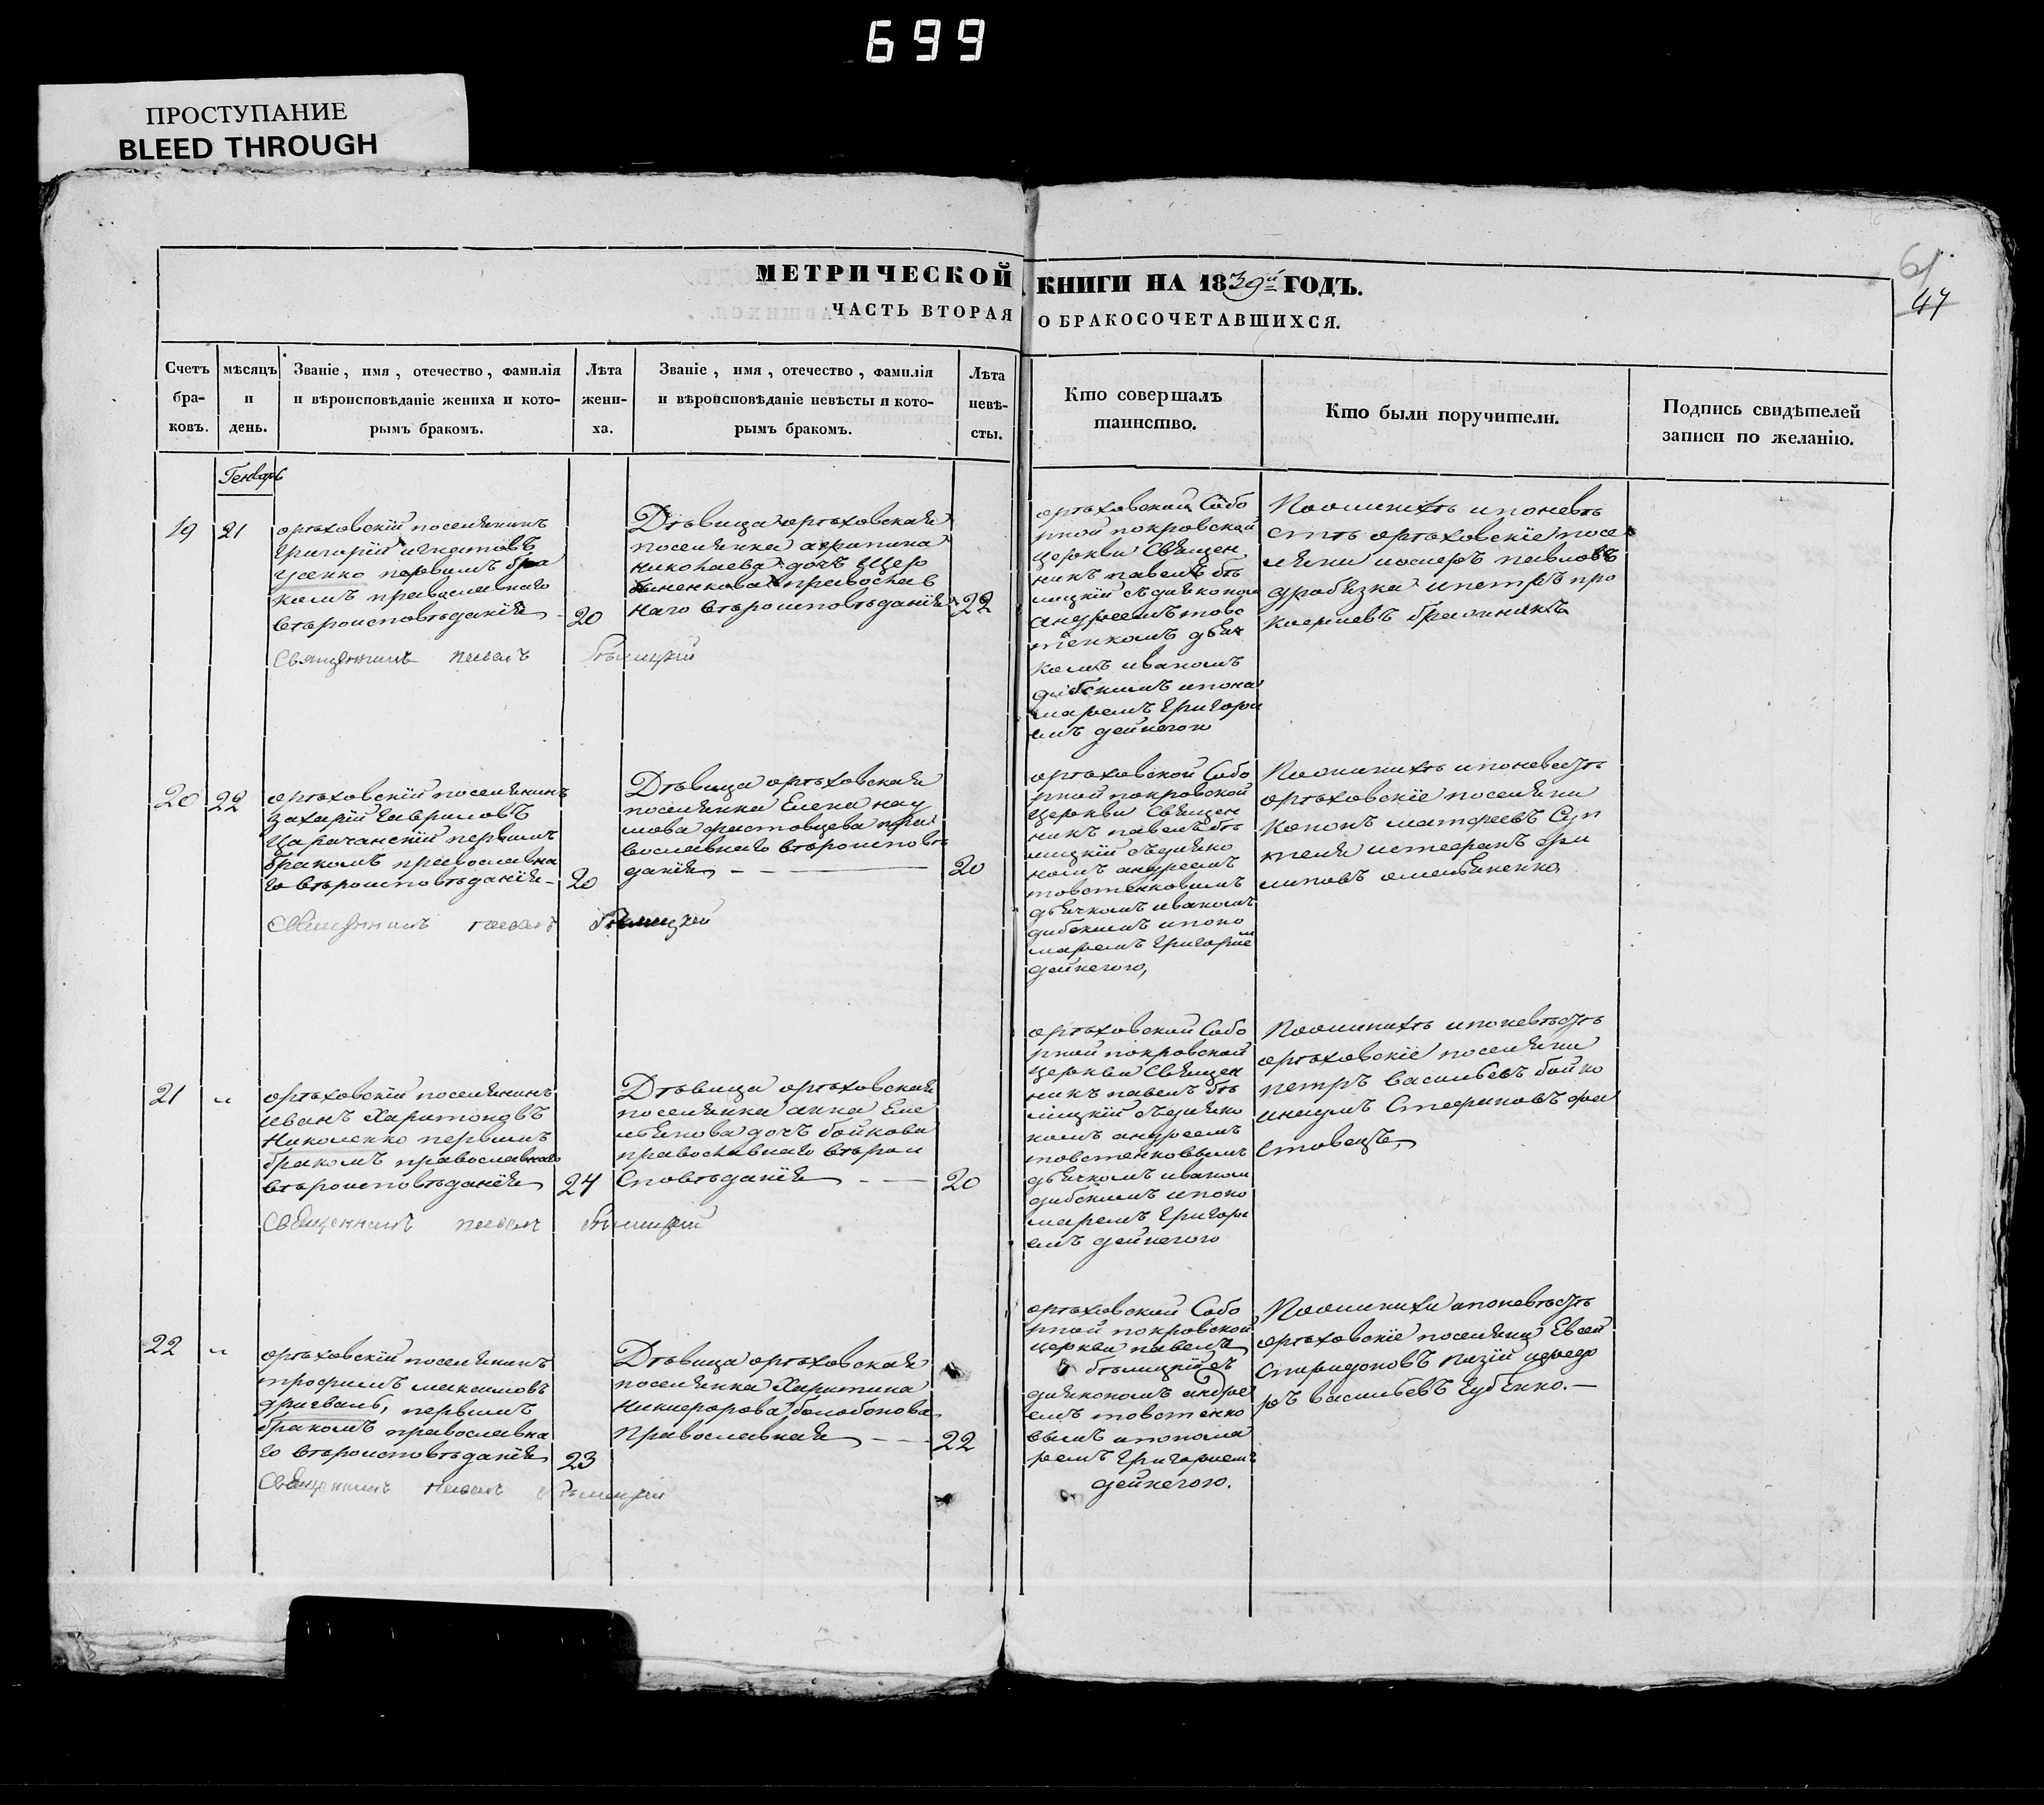 699
ПРОСТУПАНИЕ
BLEED THROUGH
МЕТРИЧЕСКОЙ КНИГИ НА 1839й ГОДЪ.
ЧАСТЬ ВТОРАЯ О БРАКОСОЧЕТАВШИХСЯ.
61
47
Счетъ бра-ковъ.
мѣсяцъ и день.
Званіе, имя, отечество, фамилія
и вѣроисповѣданіе жениха и кото-
рымъ бракомъ.
Лѣта жени-ха.
Званіе, имя, отечество, фамилія
и вѣроисповѣданіе невѣсты и кото-
рымъ бракомъ.
Лѣта невѣ-сты.
Кто совершалъ
таинство.
Кто были поручители.
Подпись свидѣтелей
записи по желанію.
Генварь
19
21
орѣховскій поселянинъ
григорій игнатовъ
усенко первымъ бра
комъ православнаго
вѣроисповѣданія
20
Дѣвица орѣховская
поселянка агрипина
николаева дочъ щер
биненкова православ
наго вѣроисповѣданія
22
орѣховской Собо
рной покровской
церкви Священ
никъ павелъ бѣ
лицкій съдіяконом
андреемъ товс
тенкомъ дьяч
комъ иваномъ
дибскимъ ипоно
маремъ григори
емъ дейнегою
Поженихѣ ипоневѣ
стѣ орѣховскіе посе
ляни іосифъ павловъ
дробязка ипетръ про
кофиевъ бражникъ
Священникъ павелъ бѣлицкій
20
22
орѣховскій поселянинъ
захарій гавриловъ
царачанскій первымъ
бракомъ православна
го вѣроисповѣданія
20
Дѣвица орѣховская
поселянка Елена нау
мова фистовцева пра
вославнаго вѣроисповѣ
данія
20
орѣховской Собо
рной покровской
церкви Священ
никъ павелъ бѣ
лицкій съдіяко
номъ андреемъ
товстенковымъ
дьячкомъ иваномъ
дибскимъ ипоно
маремъ григоріем
дейнегою,
Поженихѣ ипоневестѣ
орѣховскіе поселяни
кононъ матфеевъ Суп
теля истефанъ фи
липовъ омельяненко,
Священникъ павелъ бѣлицкій
21
"
орѣховскій поселянинъ
иванъ Харитоновъ
Николенко первымъ
бракомъ православнаго
вѣроисповѣданія
24
Дѣвица орѣховская
поселянка анна Еме
льянова дочъ бойкова
православнаго вѣрои
Сповѣданія
20
орѣховской Собо
рной покровской
церкви Священ
никъ павелъ бѣ
лицкій съдіяко
номъ андреемъ
товстенковымъ
дьячкомъ иваном
дибскимъ ипоно
маремъ григори
емъ дейнегою
Поженихѣ ипоневѣстѣ
орѣховскіе поселяни
петръ васильевъ бойко
инаумъ Стефановъ фи
стовецъ,
Священникъ павелъ бѣлицкій
22
"
орѣховскій поселянинъ
трофимъ максимовъ
дригваль, первымъ
бракомъ православна
го вѣроисповѣданія
23
Дѣвица орѣховская
поселянка Харитина
Никифорова болобонова
Православная
22
орѣховской Собо
рной покровской
церкви павелъ
бѣлицкій съ
діякономъ андре
емъ товстенко
вымъ ипонома
ремъ григориемъ
дейнегою.
Поженихи ипоневѣстѣ
орѣховскіе поселяни Евсей
Спиридоновъ пизій ифедо
ръ васильевъ губенко.
Священникъ павелъ бѣлицкій